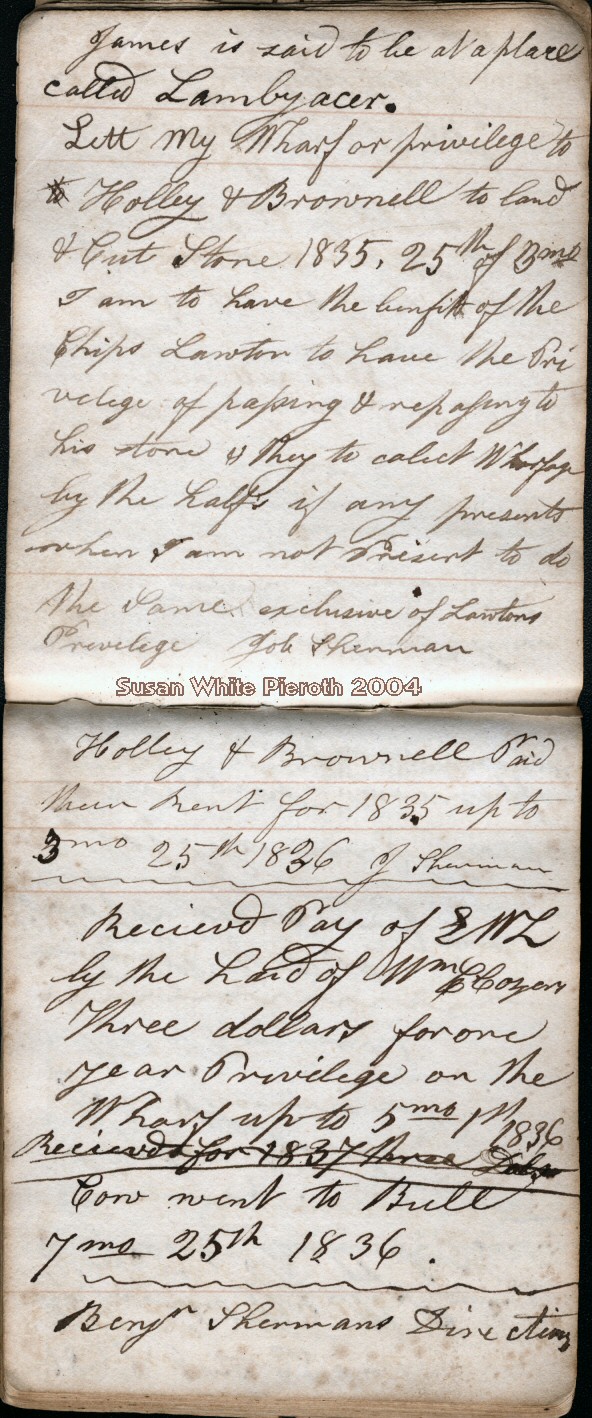 James is said to be at a place
called Lambyacer.
Lett My Wharf or privilege to
Holley & Brownell to land
& Cut Stone 1835, 25th of 3mo
I am to have the benfitt of the
Chips Lawton to have the Pri
velege of passing & repasing to
his store & they to calect Wharfage
by the halfs if any presents
when I am not Present to do
the Same exclusive of Lawtons
Privelege Job Sherman
Susan White Pieroth 2004
Holley & Brownell Paid
their Rent for 1835 up to
3mo 25th 1836 J Sherman
Recievd Pay of E W L
by the hand of Wm
Three dollars for one
year Privilege on the
Wharf up to 5mo 1st 1836
Recievd for 1837 three
Cow went to Bull
7mo 25th 1836.
Benjn Shermans Direction